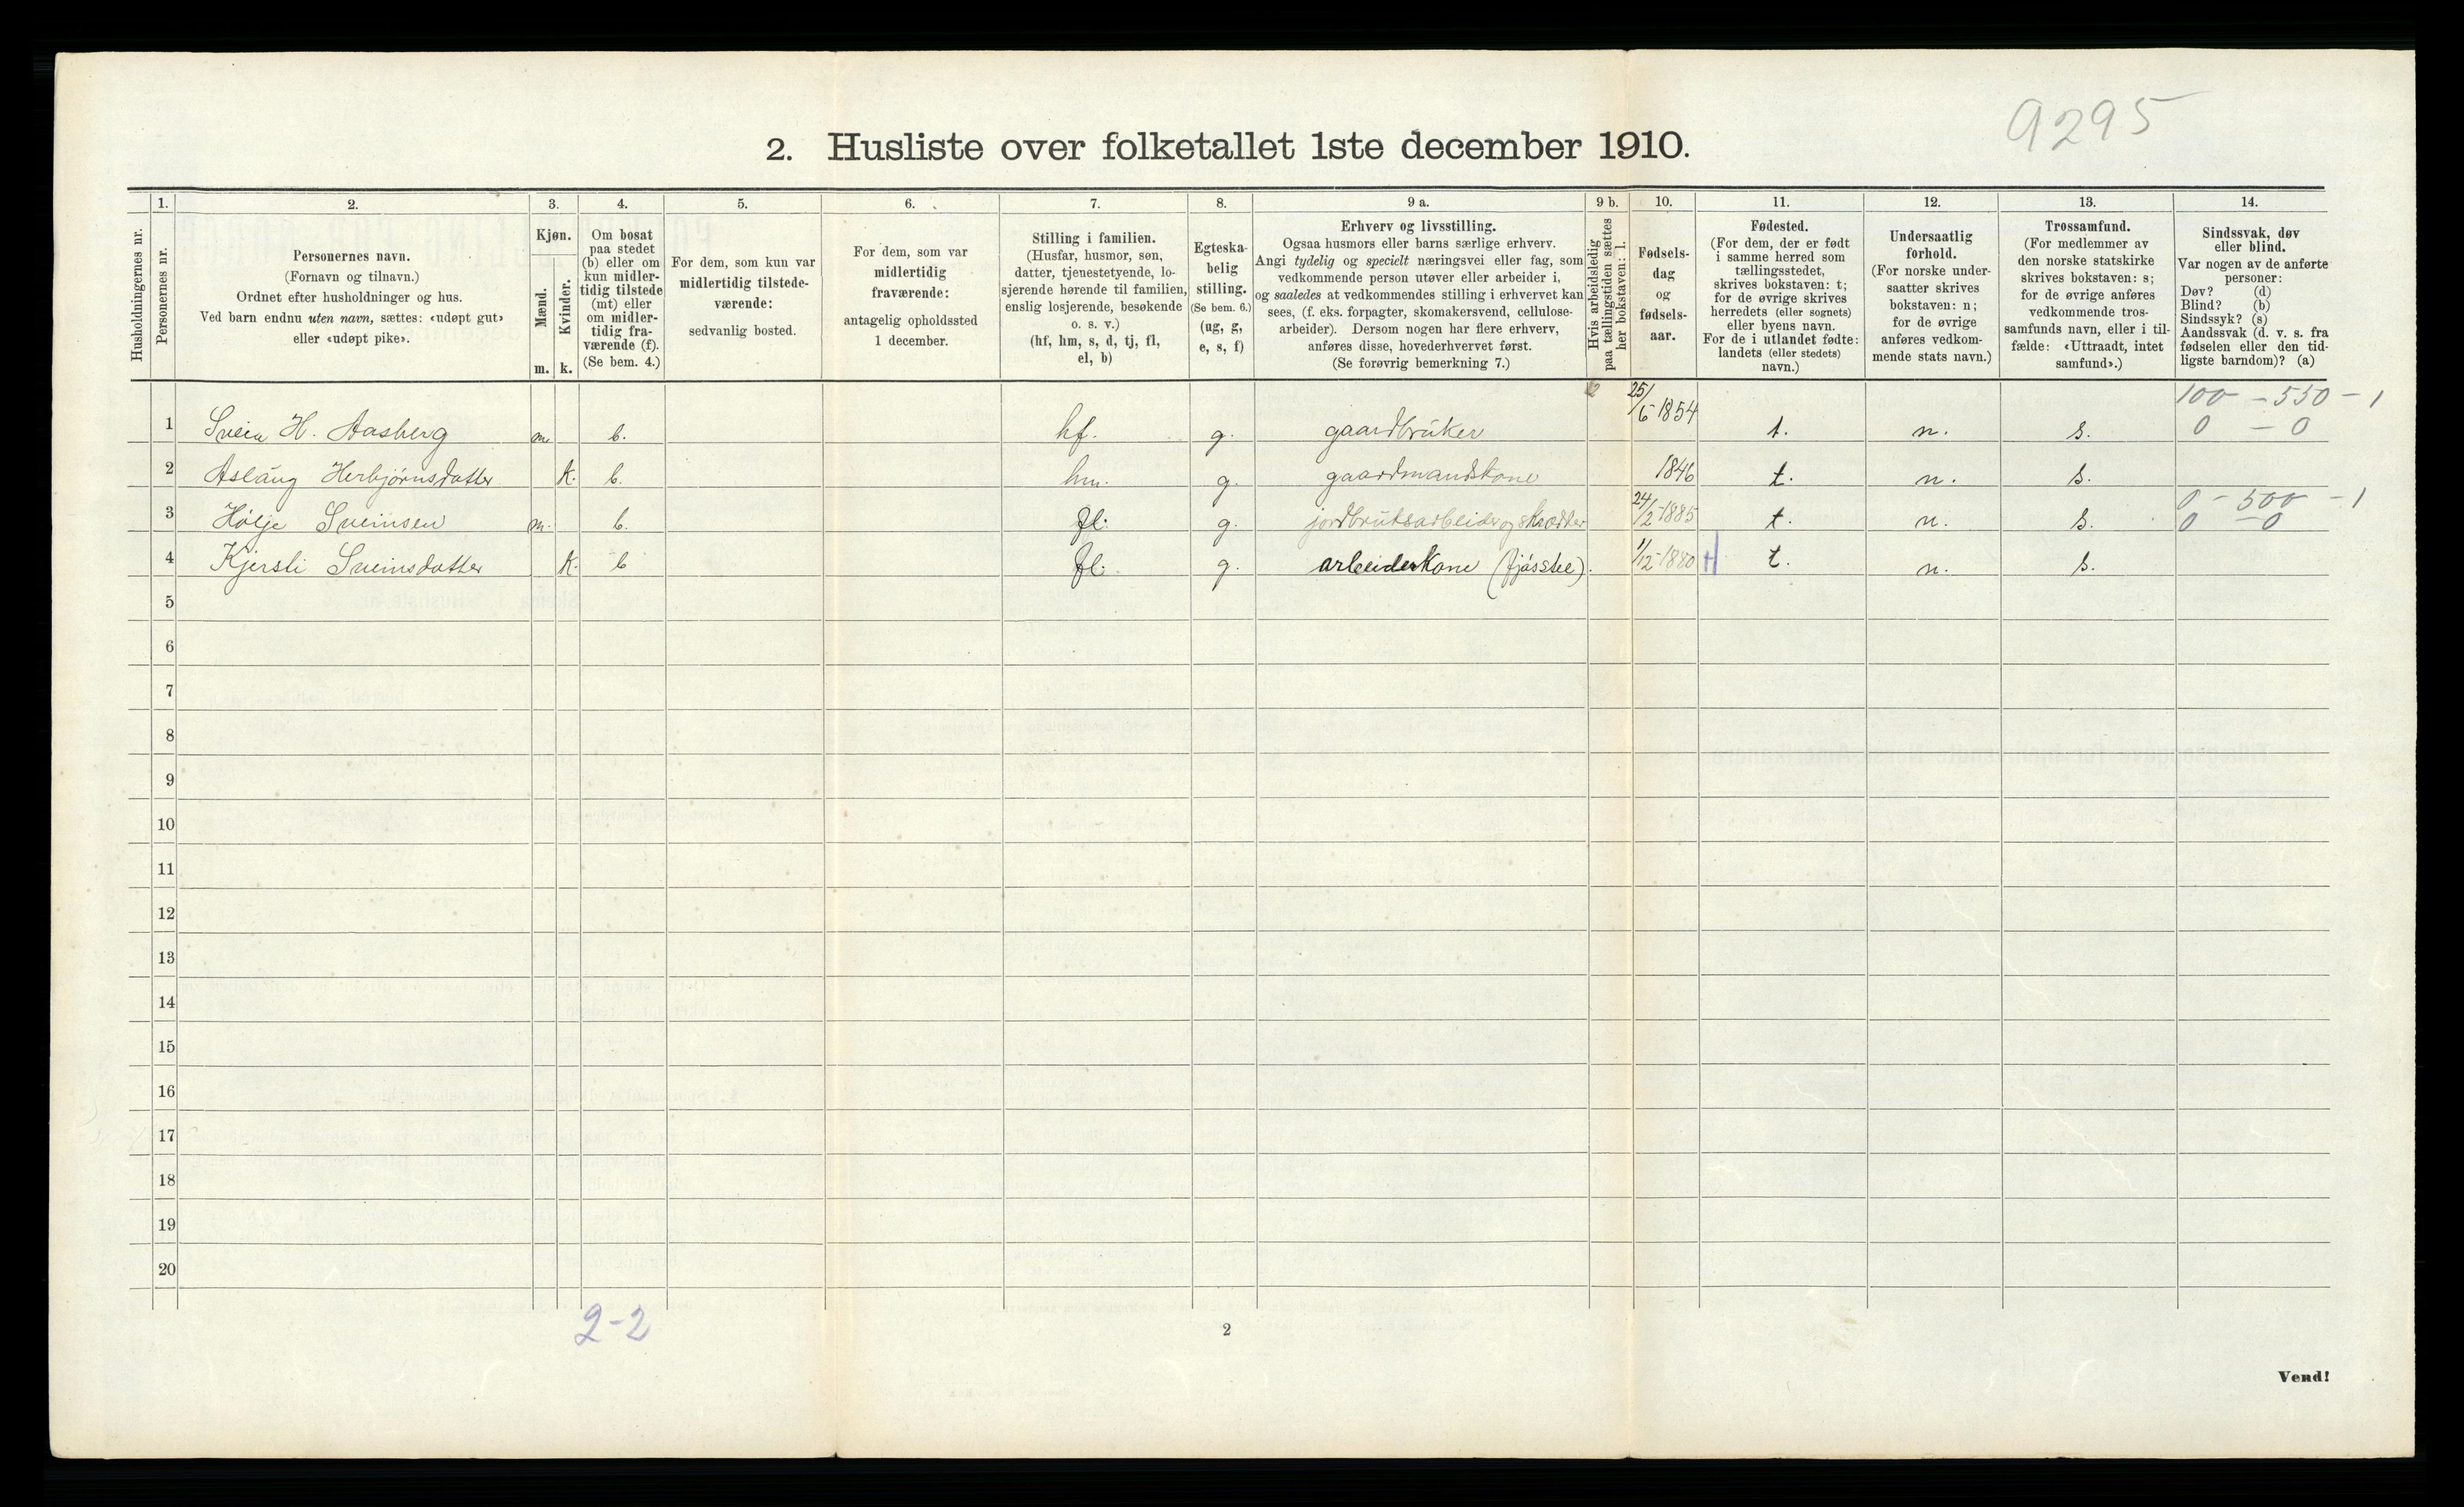 9295
2. Husliste over folketallet 1ste december 1910.
Husholdningernes nr.
1.
Personernes nr.
2.
Personernes navn.
(Fornavn og tilnavn.)
Ordnet efter husholdninger og hus.
Ved barn endnu uten navn, sættes: «udøpt gut»
eller «udøpt pike».
3.
Kjøn.
Mænd.
m.
Kvinder.
k.
4.
Om bosat
paa stedet
(b) eller om
kun midler-
tidig tilstede
(mt) eller
om midler-
tidig fra-
værende (f).
(Se bem. 4.)
5.
For dem, som kun var
midlertidig tilstede-
værende:
sedvanlig bosted.
6.
For dem, som var
midlertidig
fraværende:
antagelig opholdssted
1 december.
7.
Stilling i familien.
(Husfar, husmor, søn,
datter, tjenestetyende, lo-
sjerende hørende til familien,
enslig losjerende, besøkende
o. s. v.)
(hf, hm, s, d, tj, fl,
el, b)
8.
Egteska-
belig
stilling.
(Se bem. 6.)
(ug, g,
e, s, f)
9 a.
Erhverv og livsstilling.
Ogsaa husmors eller barns særlige erhverv.
Angi tydelig og specielt næringsvei eller fag, som
vedkommende person utøver eller arbeider i,
og saaledes at vedkommendes stilling i erhvervet kan
sees, (f. eks. forpagter, skomakersvend, cellulose-
arbeider). Dersom nogen har flere erhverv,
anføres disse, hovederhvervet først.
(Se forøvrig bemerkning 7.)
9 b.
Hvis arbeidsledig
paa tællingstiden sættes
her bokstaven: l.
10.
Fødsels-
dag
og
fødsels-
aar.
11.
Fødested.
(For dem, der er født
i samme herred som
tællingsstedet,
skrives bokstaven: t;
for de øvrige skrives
herredets (eller sognets)
eller byens navn.
For de i utlandet fødte:
landets (eller stedets)
navn.)
12.
Undersaatlig
forhold.
(For norske under-
saatter skrives
bokstaven: n;
for de øvrige
anføres vedkom-
mende stats navn.)
13.
Trossamfund.
(For medlemmer av
den norske statskirke
skrives bokstaven: s;
for de øvrige anføres
vedkommende tros-
samfunds navn, eller i til-
fælde: «Uttraadt, intet
samfund».)
14.
Sindssvak, døv
eller blind.
Var nogen av de anførte
personer:
Døv? (d)
Blind? (b)
Sindssyk? (s)
Aandssvak (d. v. s. fra
fødselen eller den tid-
ligste barndom)? (a)
100 - 550 - 1
1 Svein H. Aasberg m. b. hf. g. gaardbruker 25/6 1854 t. n. s. 0 - 0
2 Aslaug Herbjørnsdatter k. b. hm. g. gaardmandskone 1846 t. n. s.
0 - 500 - 1
3 Hølje Sveinsen m. b. fl. g. jordbruksarbeider og skrædder 24/2-1885 t. n. s. 0 - 0
4 Kjersti Sveinsdatter k. b fl. g. arbeiderkone (fjøsstel). 1/12-1880 t. n. s.
5
6
7
8
9
10
11
12
13
14
15
16
17
18
19
20
2-2
2
Vend!